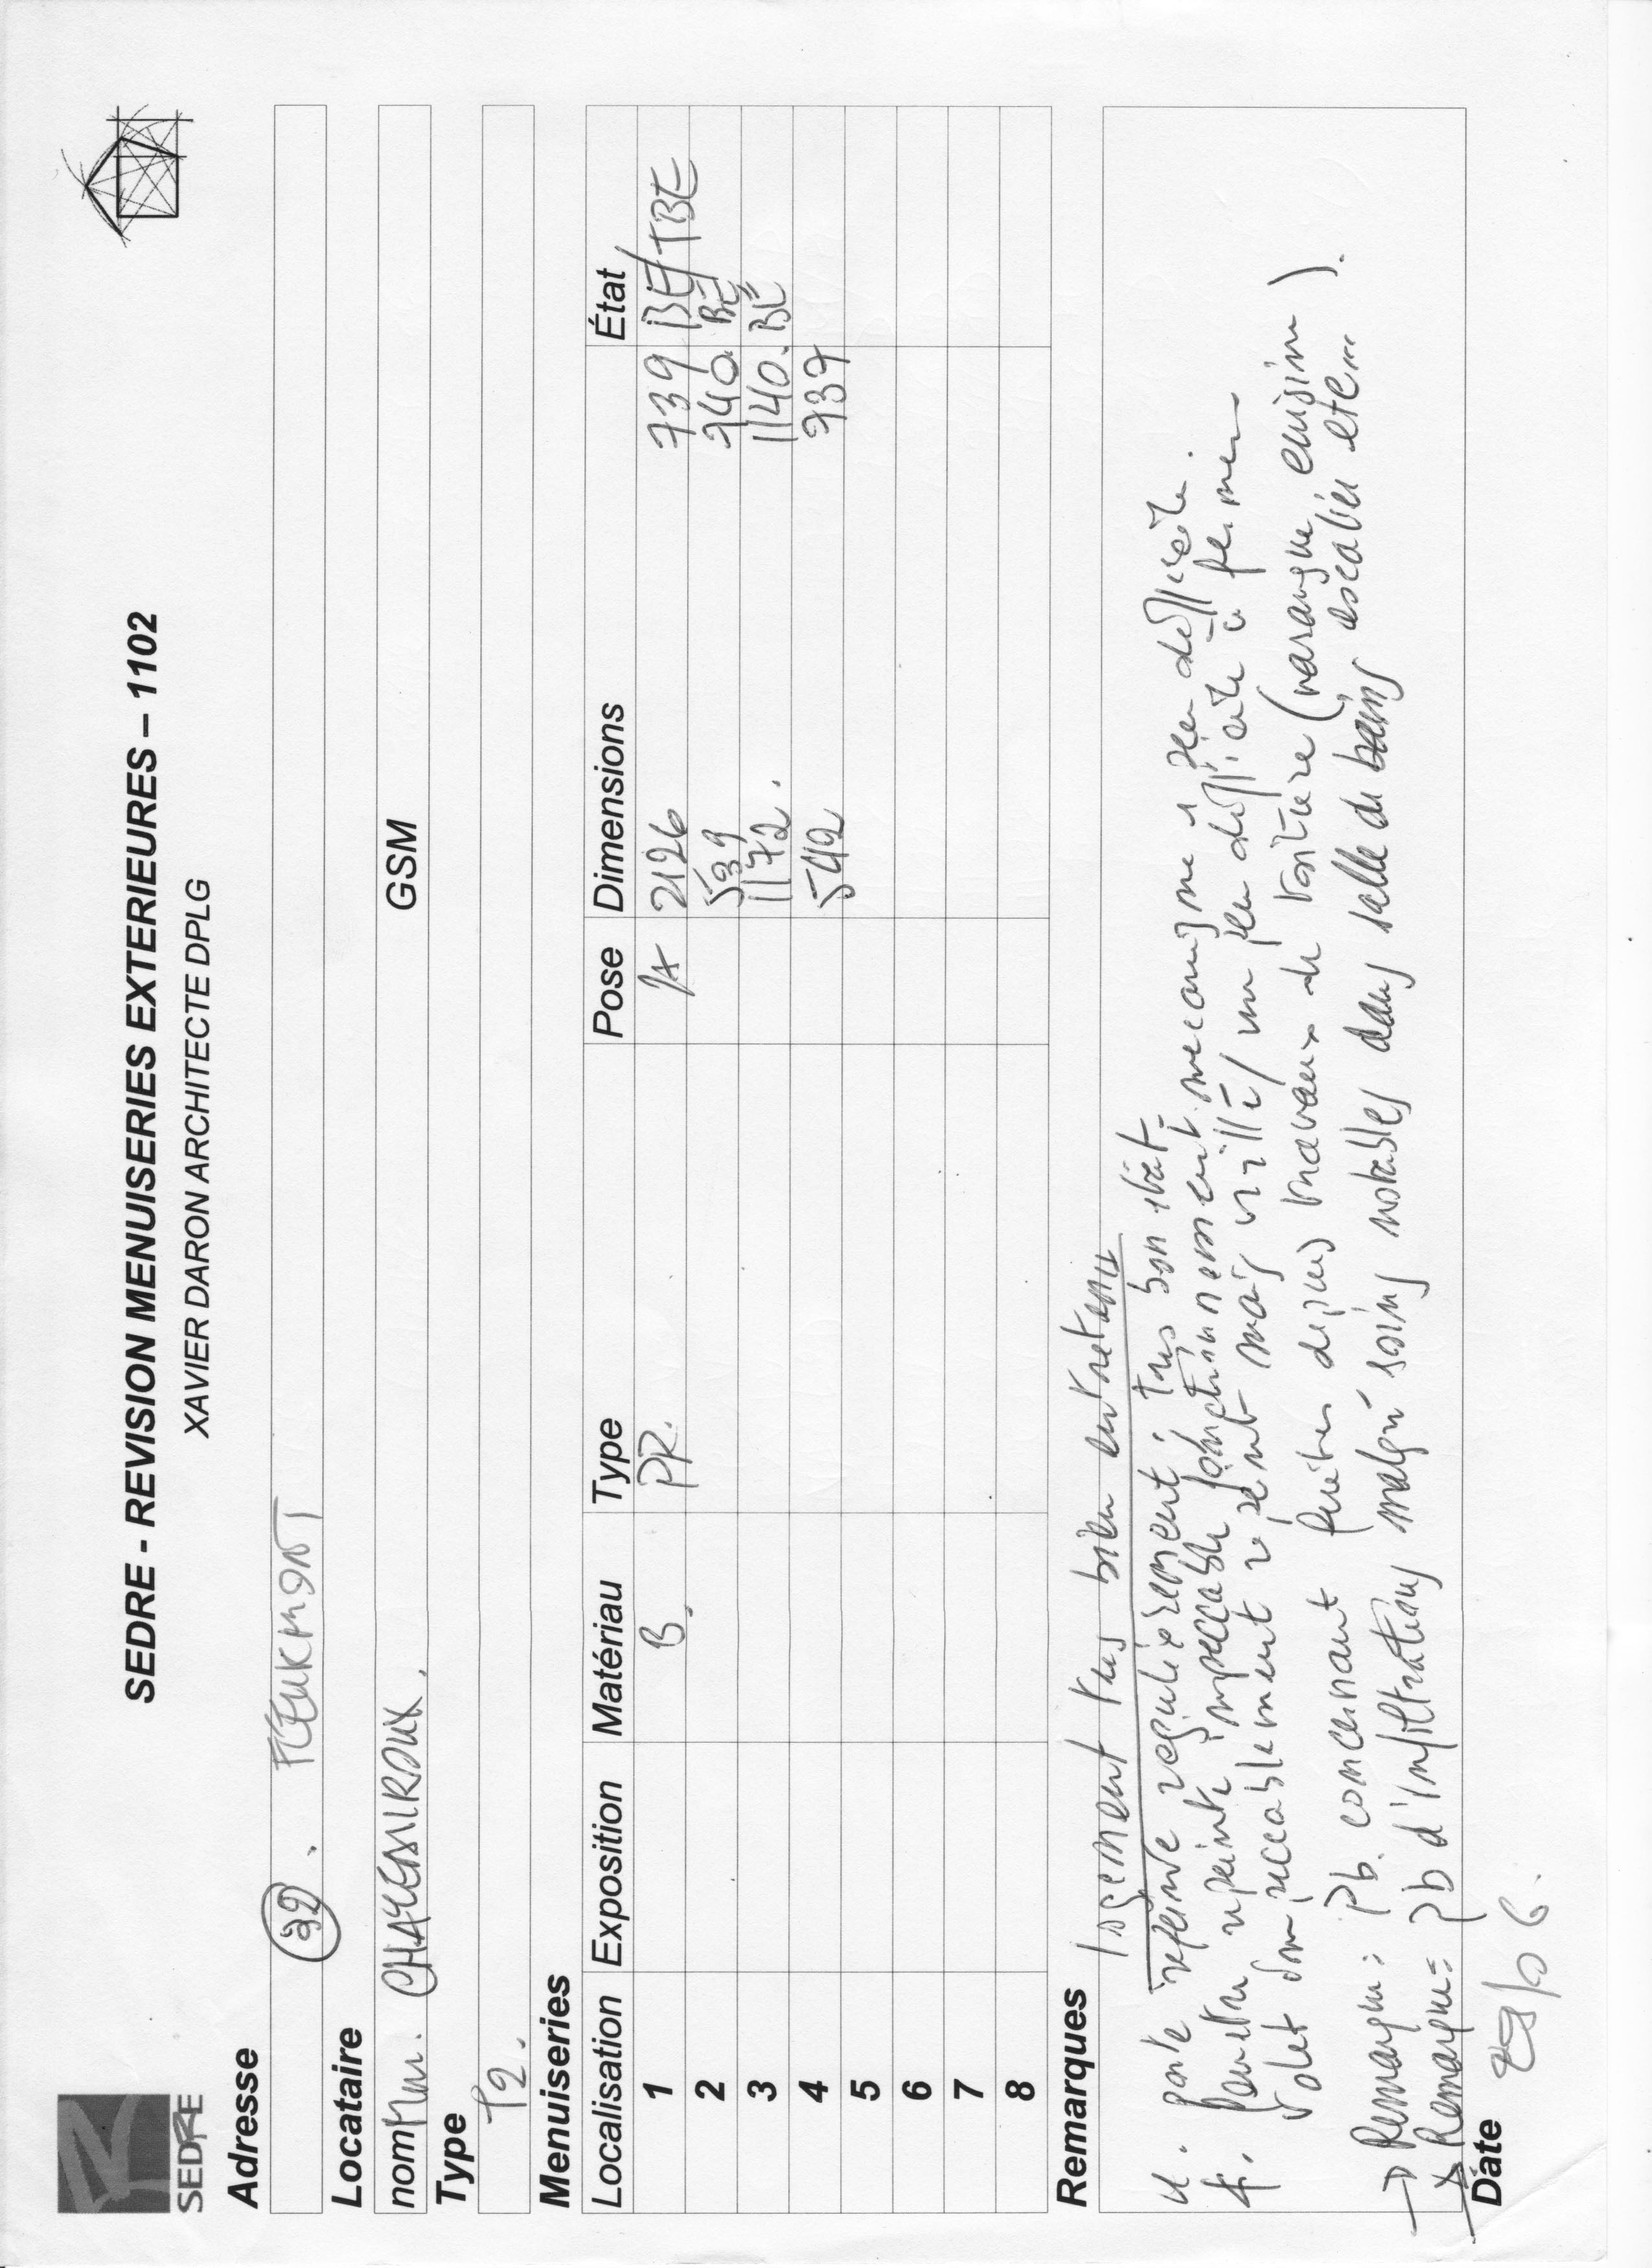 SEDRE
SEDRE - REVISION MENUISERIES EXTERIEURES – 1102
XAVIER DARON ARCHITECTE DPLG
Adresse
32.
Locataire
nom Mm. GSM
Type
T2.
Menuiseries
Localisation Exposition Matériau Type Pose Dimensions État
1 B. PR. 2126 739 BE/TBE
2 539 940. BE
3 1172. 1140. BE
4 542 939
5
6
7
8
Remarques
logement très bien entretenu
porte repeinte régulièrement. très bon état.
fenêtre repeinte impeccable fonctionnement mécanique un peu difficile.
volet impeccablement repeint mais vrillé / un peu difficile à fermer
→ Remarque: Pb. concernant fuites depuis travaux de toiture (varangue cuisine).
→ Remarque= Pb d'infiltrations malgré soins notables dans salle de bains escalier etc...
Date